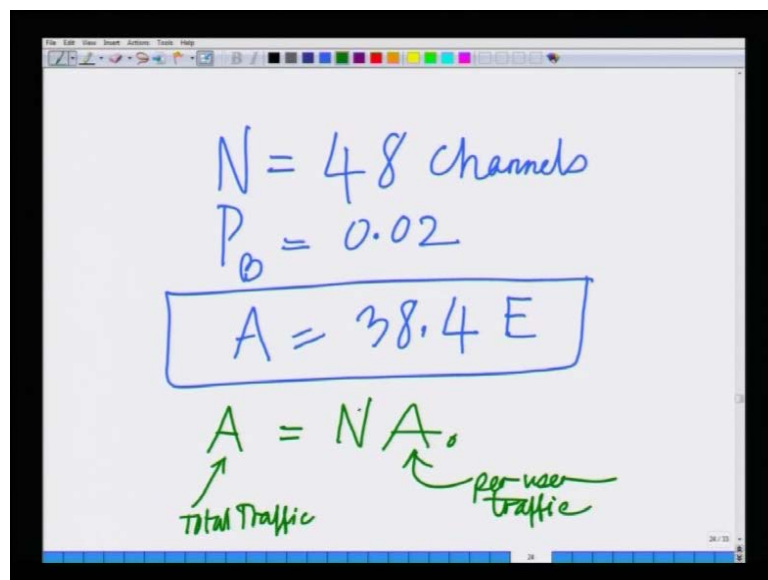 File Edit View Insert Actions Tools Help
B I
N = 48 channels
P_B = 0.02
A = 38.4 E
A = N A₀
Total Traffic
per user traffic
26